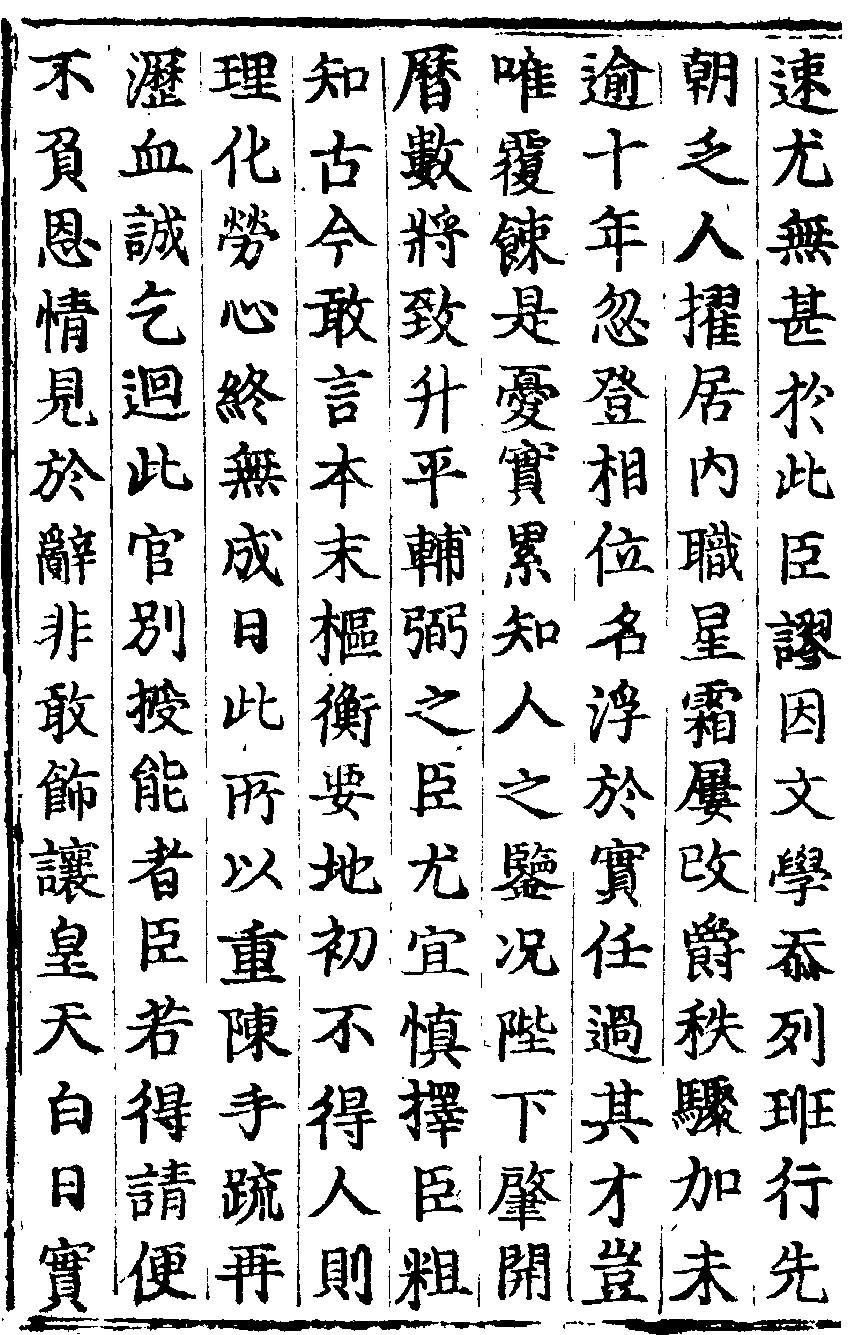 速尤無甚於此臣謬因文學忝列班行先
朝乏人擢居內職星霜屢改爵秩驟加未
逾十年忽登相位名浮於實任過其才豈
唯覆餗是憂實累知人之鑒况陛下肇開
曆數將致升平輔弼之臣尤宜慎擇臣粗
知古今敢言本末樞衡要地初不得人則
理化勞心終無成日此所以重陳手疏再
瀝血誠乞迴此官別授能者臣若得請便
不負恩情見於辭非敢飾讓皇天白日實